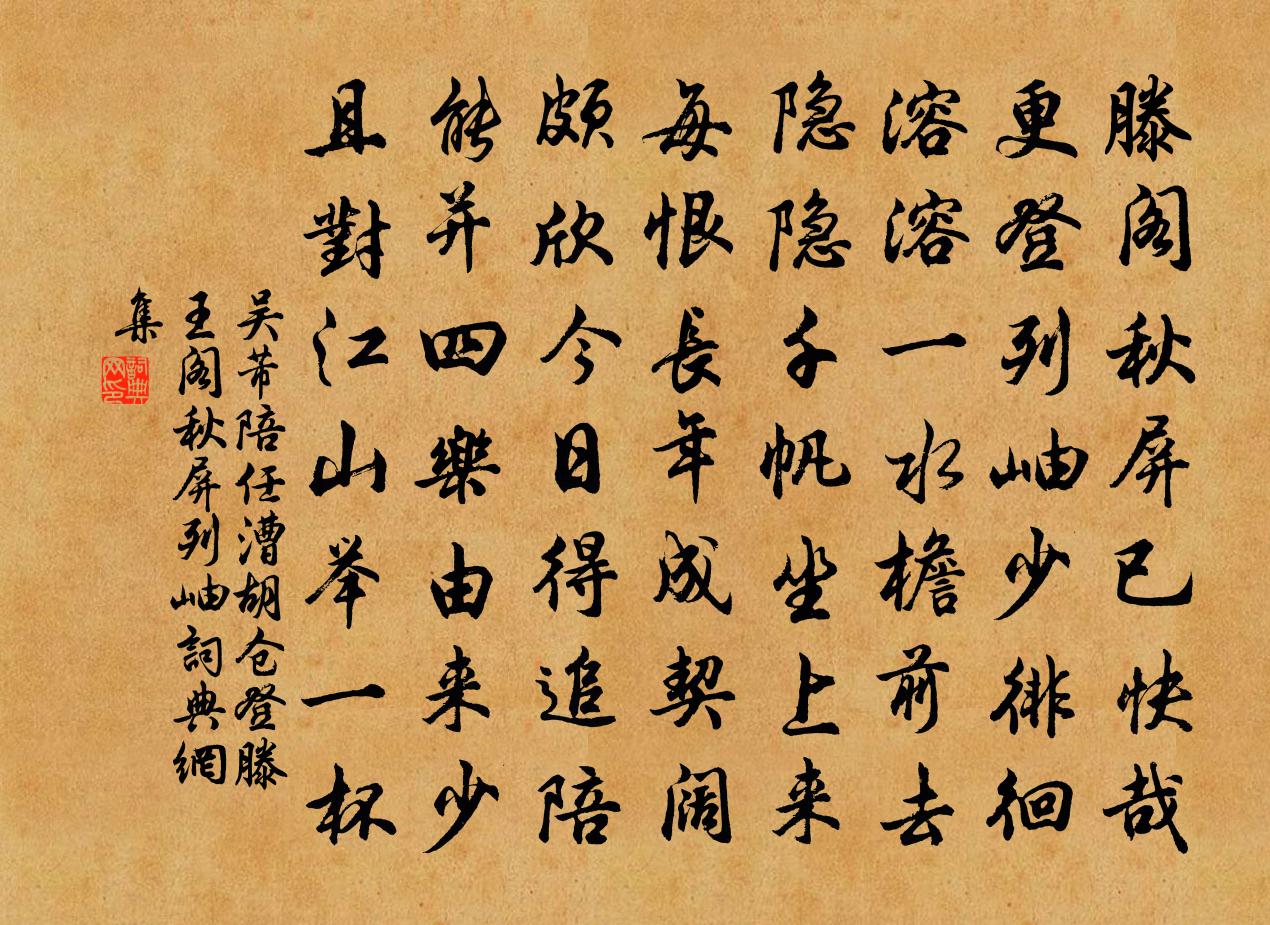 滕阁秋屏已快哉
更登列岫少徘徊
溶溶一水檐前去
隐隐千帆坐上来
每恨長年成契阔
颇欣今日得追陪
能并四樂由来少
且對江山举一杯
吴芾陪任漕胡仓登滕
王阁秋屏列岫詞典網
集
詞典网印